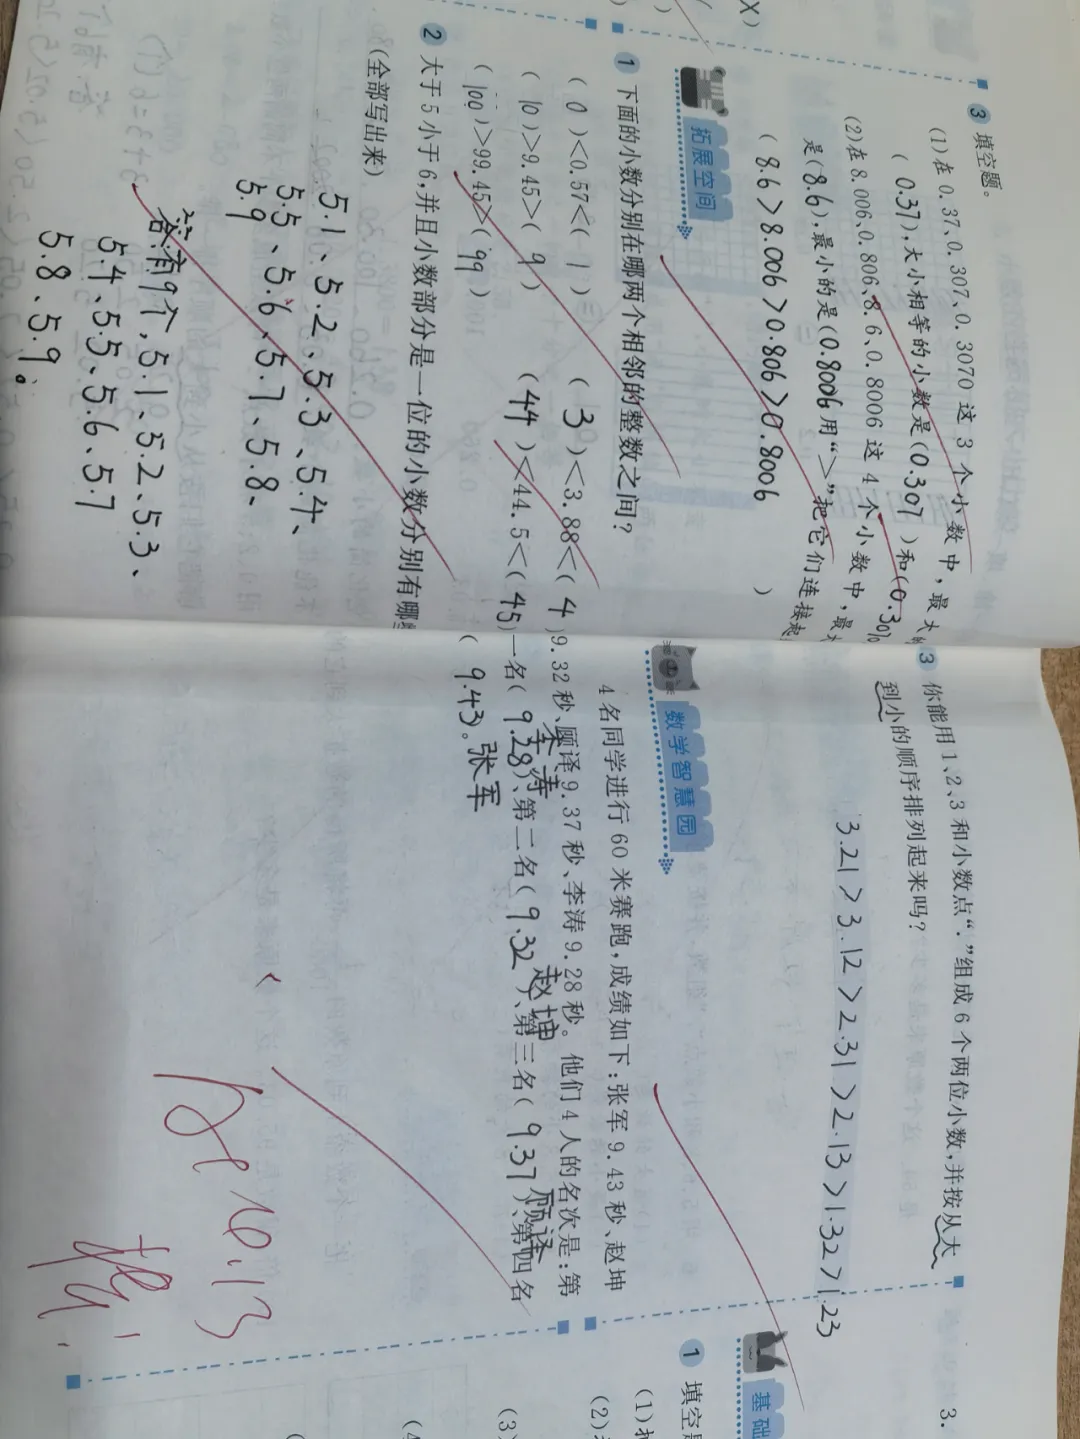 X)
③ 填空题。
(1)在 0.37、0.307、0.3070 这 3 个小数中,最大
( 0.37),大小相等的小数是(0.307 )和(0.30
(2)在 8.006、0.806、8.6、0.8006 这 4 个小数中,最
是(8.6),最小的是(0.8006 用“>”把它们连接起
( 8.6>8.006>0.806>0.8006 )
拓展空间
① 下面的小数分别在哪两个相邻的整数之间?
( 0 )<0.57<( 1 ) ( 3 )<3.88<( 4 )
( 10 )>9.45>( 9 ) ( 44 )<44.5<( 45 )
( 100 )>99.45>( 99 )
② 大于 5 小于 6,并且小数部分是一位的小数分别有哪
(全部写出来)
5.1、5.2、5.3、5.4、
5.5、5.6、5.7、5.8、
5.9
答:有9个,5.1、5.2、5.3、
5.4、5.5、5.6、5.7
5.8、5.9。
③ 你能用 1、2、3 和小数点“.”组成 6 个两位小数,并按从大
到小的顺序排列起来吗?
3.21>3.12>2.31>2.13>1.32>1.23
数学智慧园
4 名同学进行 60 米赛跑,成绩如下:张军 9.43 秒、赵坤
9.32 秒、顾译 9.37 秒、李涛 9.28 秒。他们 4 人的名次是:第
李涛 赵坤 顾译
一名( 9.28)、第二名( 9.32 )、第三名( 9.37 )、第四名
( 9.43)。张军
10.13
3.
基础
① 填空
(1)
(2)
(3)